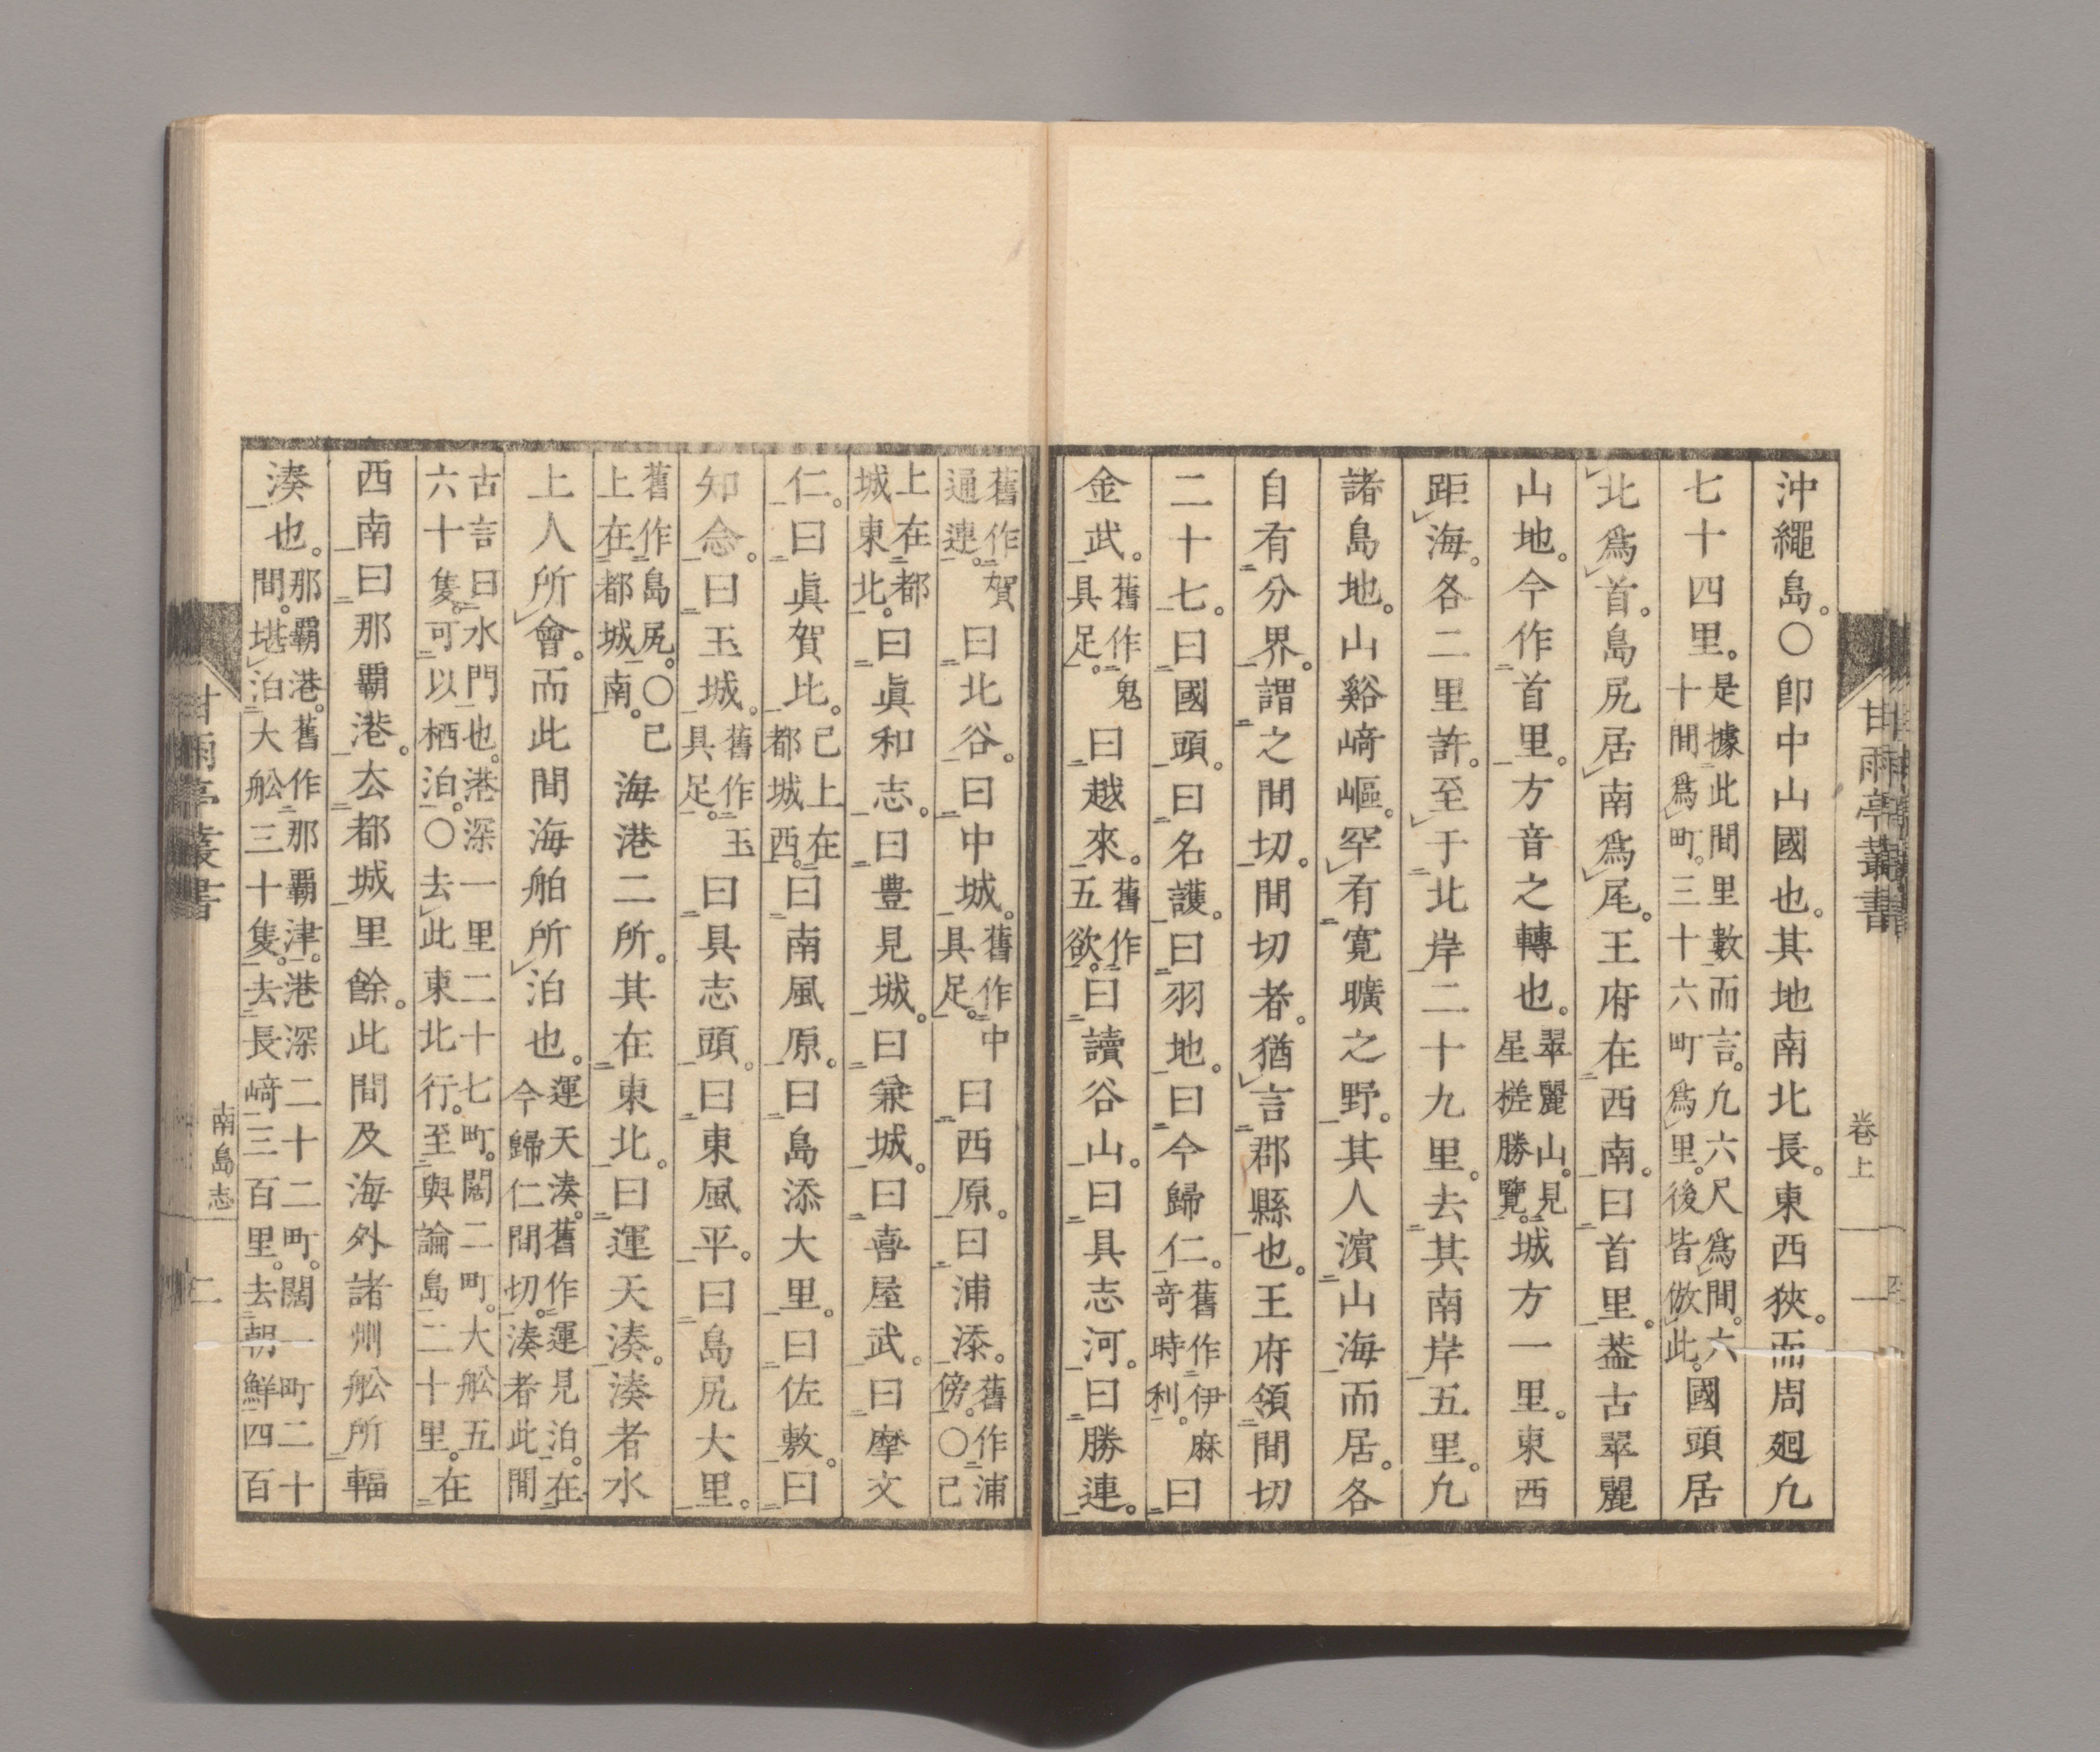 沖繩島。〇卽中山國也。其地南北長。東西狹。而周廻凢
七十四里。是據此間里數而言。凢六尺爲間。六十間爲町。三十六町爲里。後皆倣此。國頭居
北爲首。島尻居南爲尾。王府在西南。曰首里。葢古翠麗
山地。今作首里。方音之轉也。翠麗山。見星槎勝覽。城方一里。東西
距海。各二里許。至于北岸二十九里。去其南岸五里。凢
諸島地。山谿﨑嶇。罕有寛曠之野。其人濵山海而居。各
自有分界。謂之間切。間切者。猶言郡縣也。王府領間切
二十七。曰國頭。曰名護。曰羽地。曰今歸仁。舊作伊麻奇時利。曰
金武。舊作鬼具足。曰越來。舊作五欲。曰讀谷山。曰具志河。曰勝連。
舊作賀通連。曰北谷。曰中城。舊作中具足。曰西原。曰浦添。舊作浦傍。〇已
上在都城東北。曰眞和志。曰豊見城。曰兼城。曰喜屋武。曰摩文
仁。曰眞賀比。已上在都城西。曰南風原。曰島添大里。曰佐敷。曰
知念。曰玉城。舊作玉具足。曰具志頭。曰東風平。曰島尻大里。
舊作島尻。〇已上在都城南。海港二所。其在東北。曰運天湊。湊者水
上人所會。而此間海舶所泊也。運天湊。舊作運見泊。在今歸仁間切。湊者此間
古言曰水門也。港深一里二十七町。闊二町。大舩五六十隻。可以栖泊。〇去此東北行。至與論島二十里。在
西南曰那覇港。去都城里餘。此間及海外諸州舩所輻
湊也。那覇港。舊作那覇津。港深二十二町。闊一町二十間。堪泊大舩三十隻。去長﨑三百里。去朝鮮四百
甘雨亭叢書
卷上
一
甘雨亭叢書
南島志
二